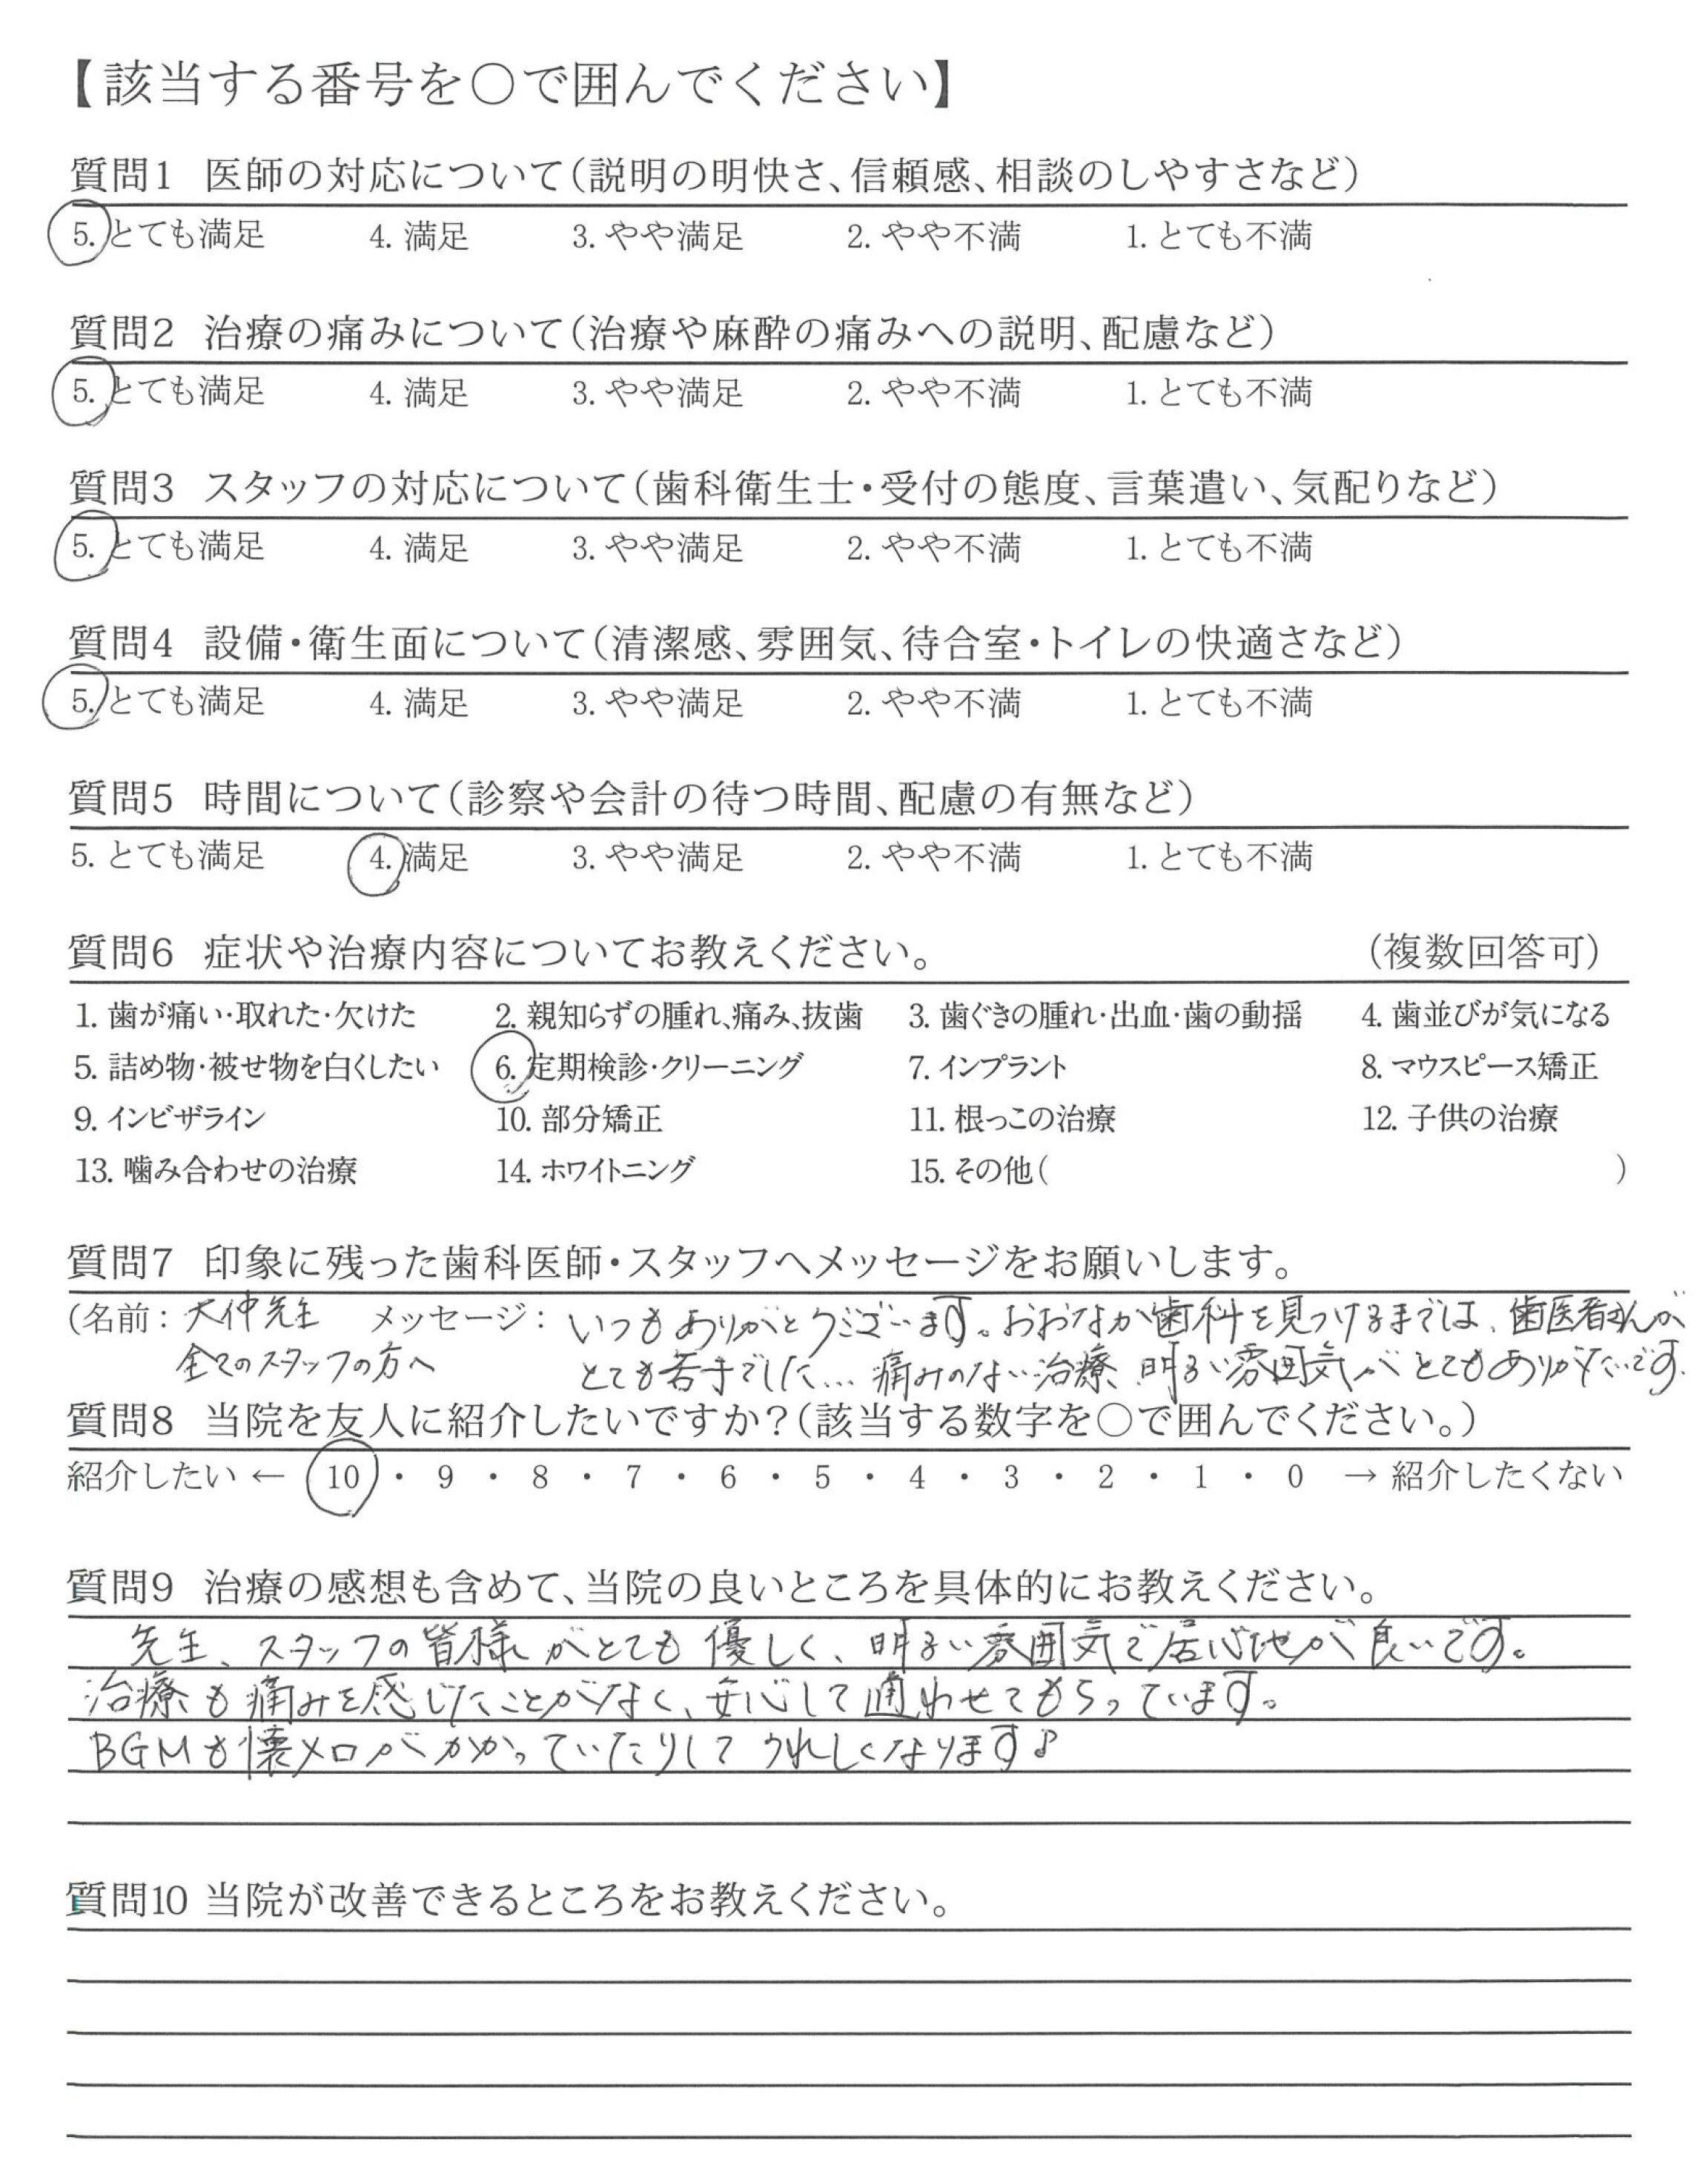 【該当する番号を○で囲んでください】
質問1 医師の対応について(説明の明快さ、信頼感、相談のしやすさなど)
5. とても満足 4. 満足 3. やや満足 2. やや不満 1. とても不満
質問2 治療の痛みについて(治療や麻酔の痛みへの説明、配慮など)
5. とても満足 4. 満足 3. やや満足 2. やや不満 1. とても不満
質問3 スタッフの対応について(歯科衛生士・受付の態度、言葉遣い、気配りなど)
5. とても満足 4. 満足 3. やや満足 2. やや不満 1. とても不満
質問4 設備・衛生面について(清潔感、雰囲気、待合室・トイレの快適さなど)
5. とても満足 4. 満足 3. やや満足 2. やや不満 1. とても不満
質問5 時間について(診察や会計の待つ時間、配慮の有無など)
5. とても満足 4. 満足 3. やや満足 2. やや不満 1. とても不満
質問6 症状や治療内容についてお教えください。 (複数回答可)
1. 歯が痛い・取れた・欠けた 2. 親知らずの腫れ、痛み、抜歯 3. 歯ぐきの腫れ・出血・歯の動揺 4. 歯並びが気になる
5. 詰め物・被せ物を白くしたい 6. 定期検診・クリーニング 7. インプラント 8. マウスピース矯正
9. インビザライン 10. 部分矯正 11. 根っこの治療 12. 子供の治療
13. 噛み合わせの治療 14. ホワイトニング 15. その他( )
質問7 印象に残った歯科医師・スタッフへメッセージをお願いします。
(名前: 大仲先生 メッセージ: いつもありがとうございます。おおなか歯科を見つけるまでは、歯医者さんが
全てのスタッフの方へ とても苦手でした… 痛みのない治療、明るい雰囲気がとてもありがたいです。
質問8 当院を友人に紹介したいですか?(該当する数字を○で囲んでください。)
紹介したい ← 10 ・ 9 ・ 8 ・ 7 ・ 6 ・ 5 ・ 4 ・ 3 ・ 2 ・ 1 ・ 0 → 紹介したくない
質問9 治療の感想も含めて、当院の良いところを具体的にお教えください。
先生、スタッフの皆様がとても優しく、明るい雰囲気で居心地が良いです。
治療も痛みを感じたことがなく、安心して通わせてもらっています。
BGMも懐メロがかかっていたりしてうれしくなります♪
質問10 当院が改善できるところをお教えください。